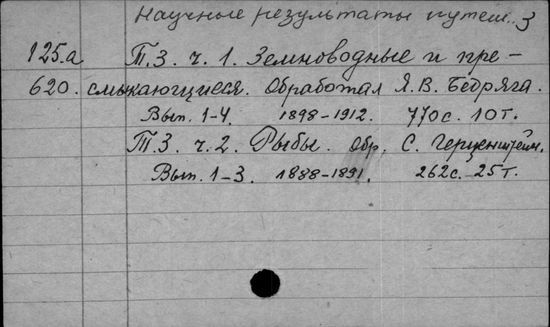 Научные результаты путеш. 3
125.а Т.3. ч. 1. Земноводные и пре-
620. смыкающиеся. Обработал Я. В. Бедряга.
Вып. 1-4. 1898-1912. 770с. 10т.
Т.3. ч. 2. Рыбы. Обр. С. Герценштейн.
Вып. 1-3. 1888-1891. 262с. 25т.